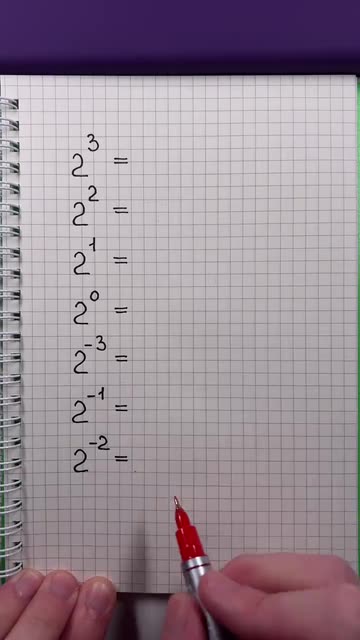 2³ =
2² =
2¹ =
2⁰ =
2⁻³ =
2⁻¹ =
2⁻² =